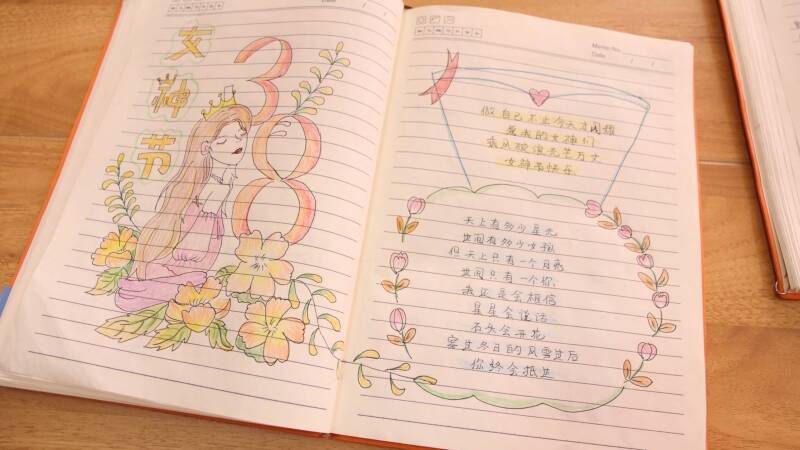 女
神
节
38
Date
Memo No.
Date
做自己不止今天才闪耀
致我的女神们
乘风破浪光芒万丈
女神节快乐
天上有多少星光
世间有多少女孩
但天上只有一个月亮
世间只有一个你
我还是会相信
星星会说话
石头会开花
穿过冬日的风雪过后
你终会抵达